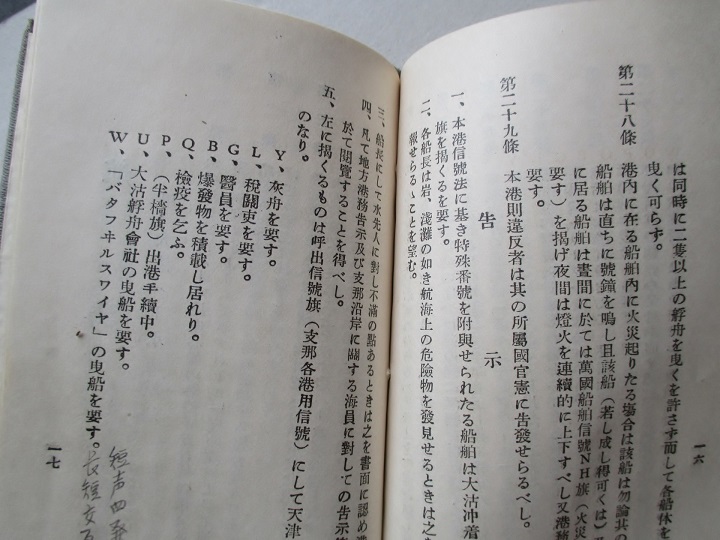 は同時に二隻以上の艀舟を曳くを許さず而して各船体を
曳く可らず。
第二十八條 港內に在る船舶內に火災起りたる塲合は該船は勿論其の
船舶は直ちに號鐘を鳴し且該船（若し成し得可くは）
に居る船舶は晝間に於ては萬國船舶信號NH旗（火災
要す）を揭げ夜間は燈火を連續的に上下すべし又港務
要す。
第二十九條 本港則違反者は其の所屬國官憲に告發せらるべし。
告示
一、本港信號法に基き特殊番號を附與せられたる船舶は大沽冲着
旗を揭くるを要す。
二、各船長は岩、淺灘の如き航海上の危險物を發見せるときは之を
報せらるゝことを望む。
一六
三、船長にして水先人に對し不滿の點あるときは之を書面に認め港
四、凡て地方港務告示及び支那沿岸に關する海員に對しての告示
於て閱覽することを得べし。
五、左に揭くるものは呼出信號旗（支那各港用信號）にして天津
のなり。
Y、灰舟を要す。
L、稅關吏を要す。
G、醫員を要す。
B、爆發物を積載し居れり。
Q、檢疫を乞ふ。
P、（半檣旗）出港手續中。
U、大沽艀舟會社の曳船を要す。
W、「バタフヰルスワイヤ」の曳船を要す。
短声四発
長短交互
一七